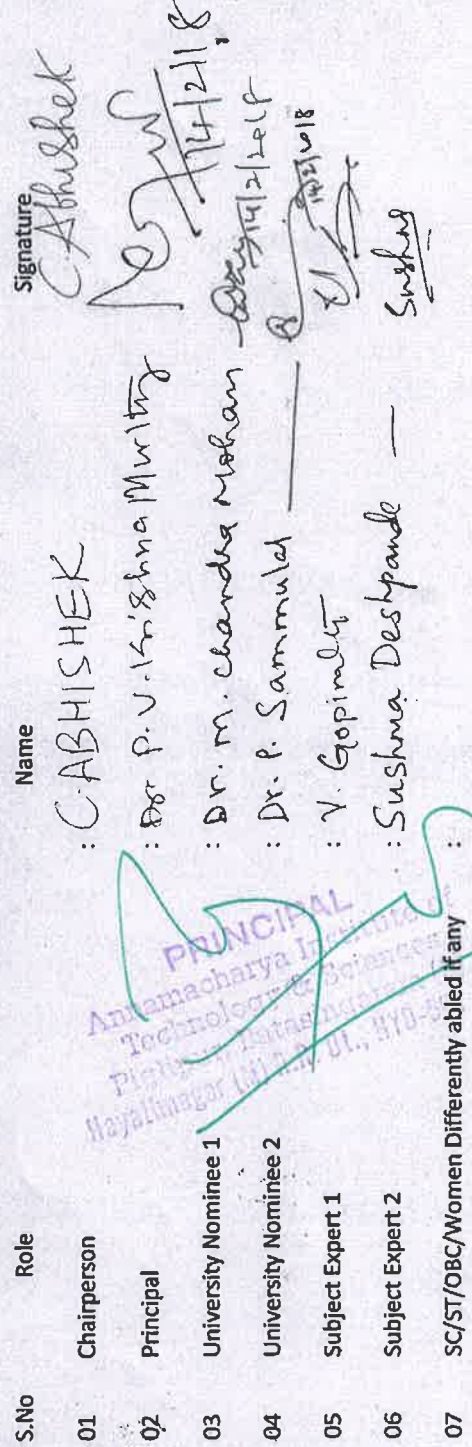 S.No Role Name Signature
01 Chairperson : C. ABHISHEK C. Abhishek
02 Principal : Dr P. V. Krishna Murthy 14/2/18
03 University Nominee 1 : Dr. M. Chandra Mohan 14/2/2018
04 University Nominee 2 : Dr. P. Sammulal
05 Subject Expert 1 : V. 
06 Subject Expert 2 : Sushma Deshpande — Sushma
07 SC/ST/OBC/Women Differently abled if any :
PRINCIPAL
Annamacharya Institute of
Technology & Sciences
Hayathnagar (M) R.R. Dt., HYD-5